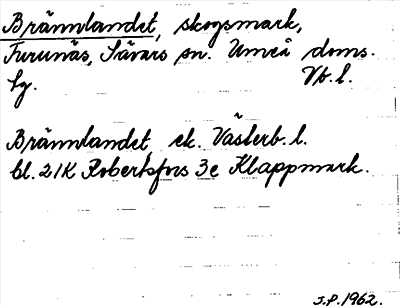 Brännlandet, skogsmark,
Furunäs, Sävars sn. Umeå doms.
lg. Vb.l.
Brännlandet ek. Västerb. l.
bl. 21K Robertsfors 3e Klappmark.
J.P. 1962.